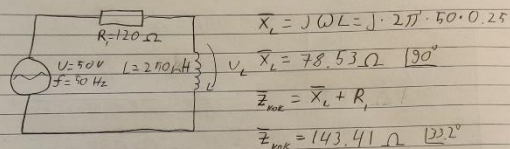 R₁=120 Ω
U=50V
f=50 Hz
L=250mH
U_L
X̅_L = JωL = j·2π·50·0.25
X̅_L = 78.53 Ω ∠90°
Z̅_кок = X̅_L + R₁
Z̅_кок = 143.41 Ω ∠33.2°